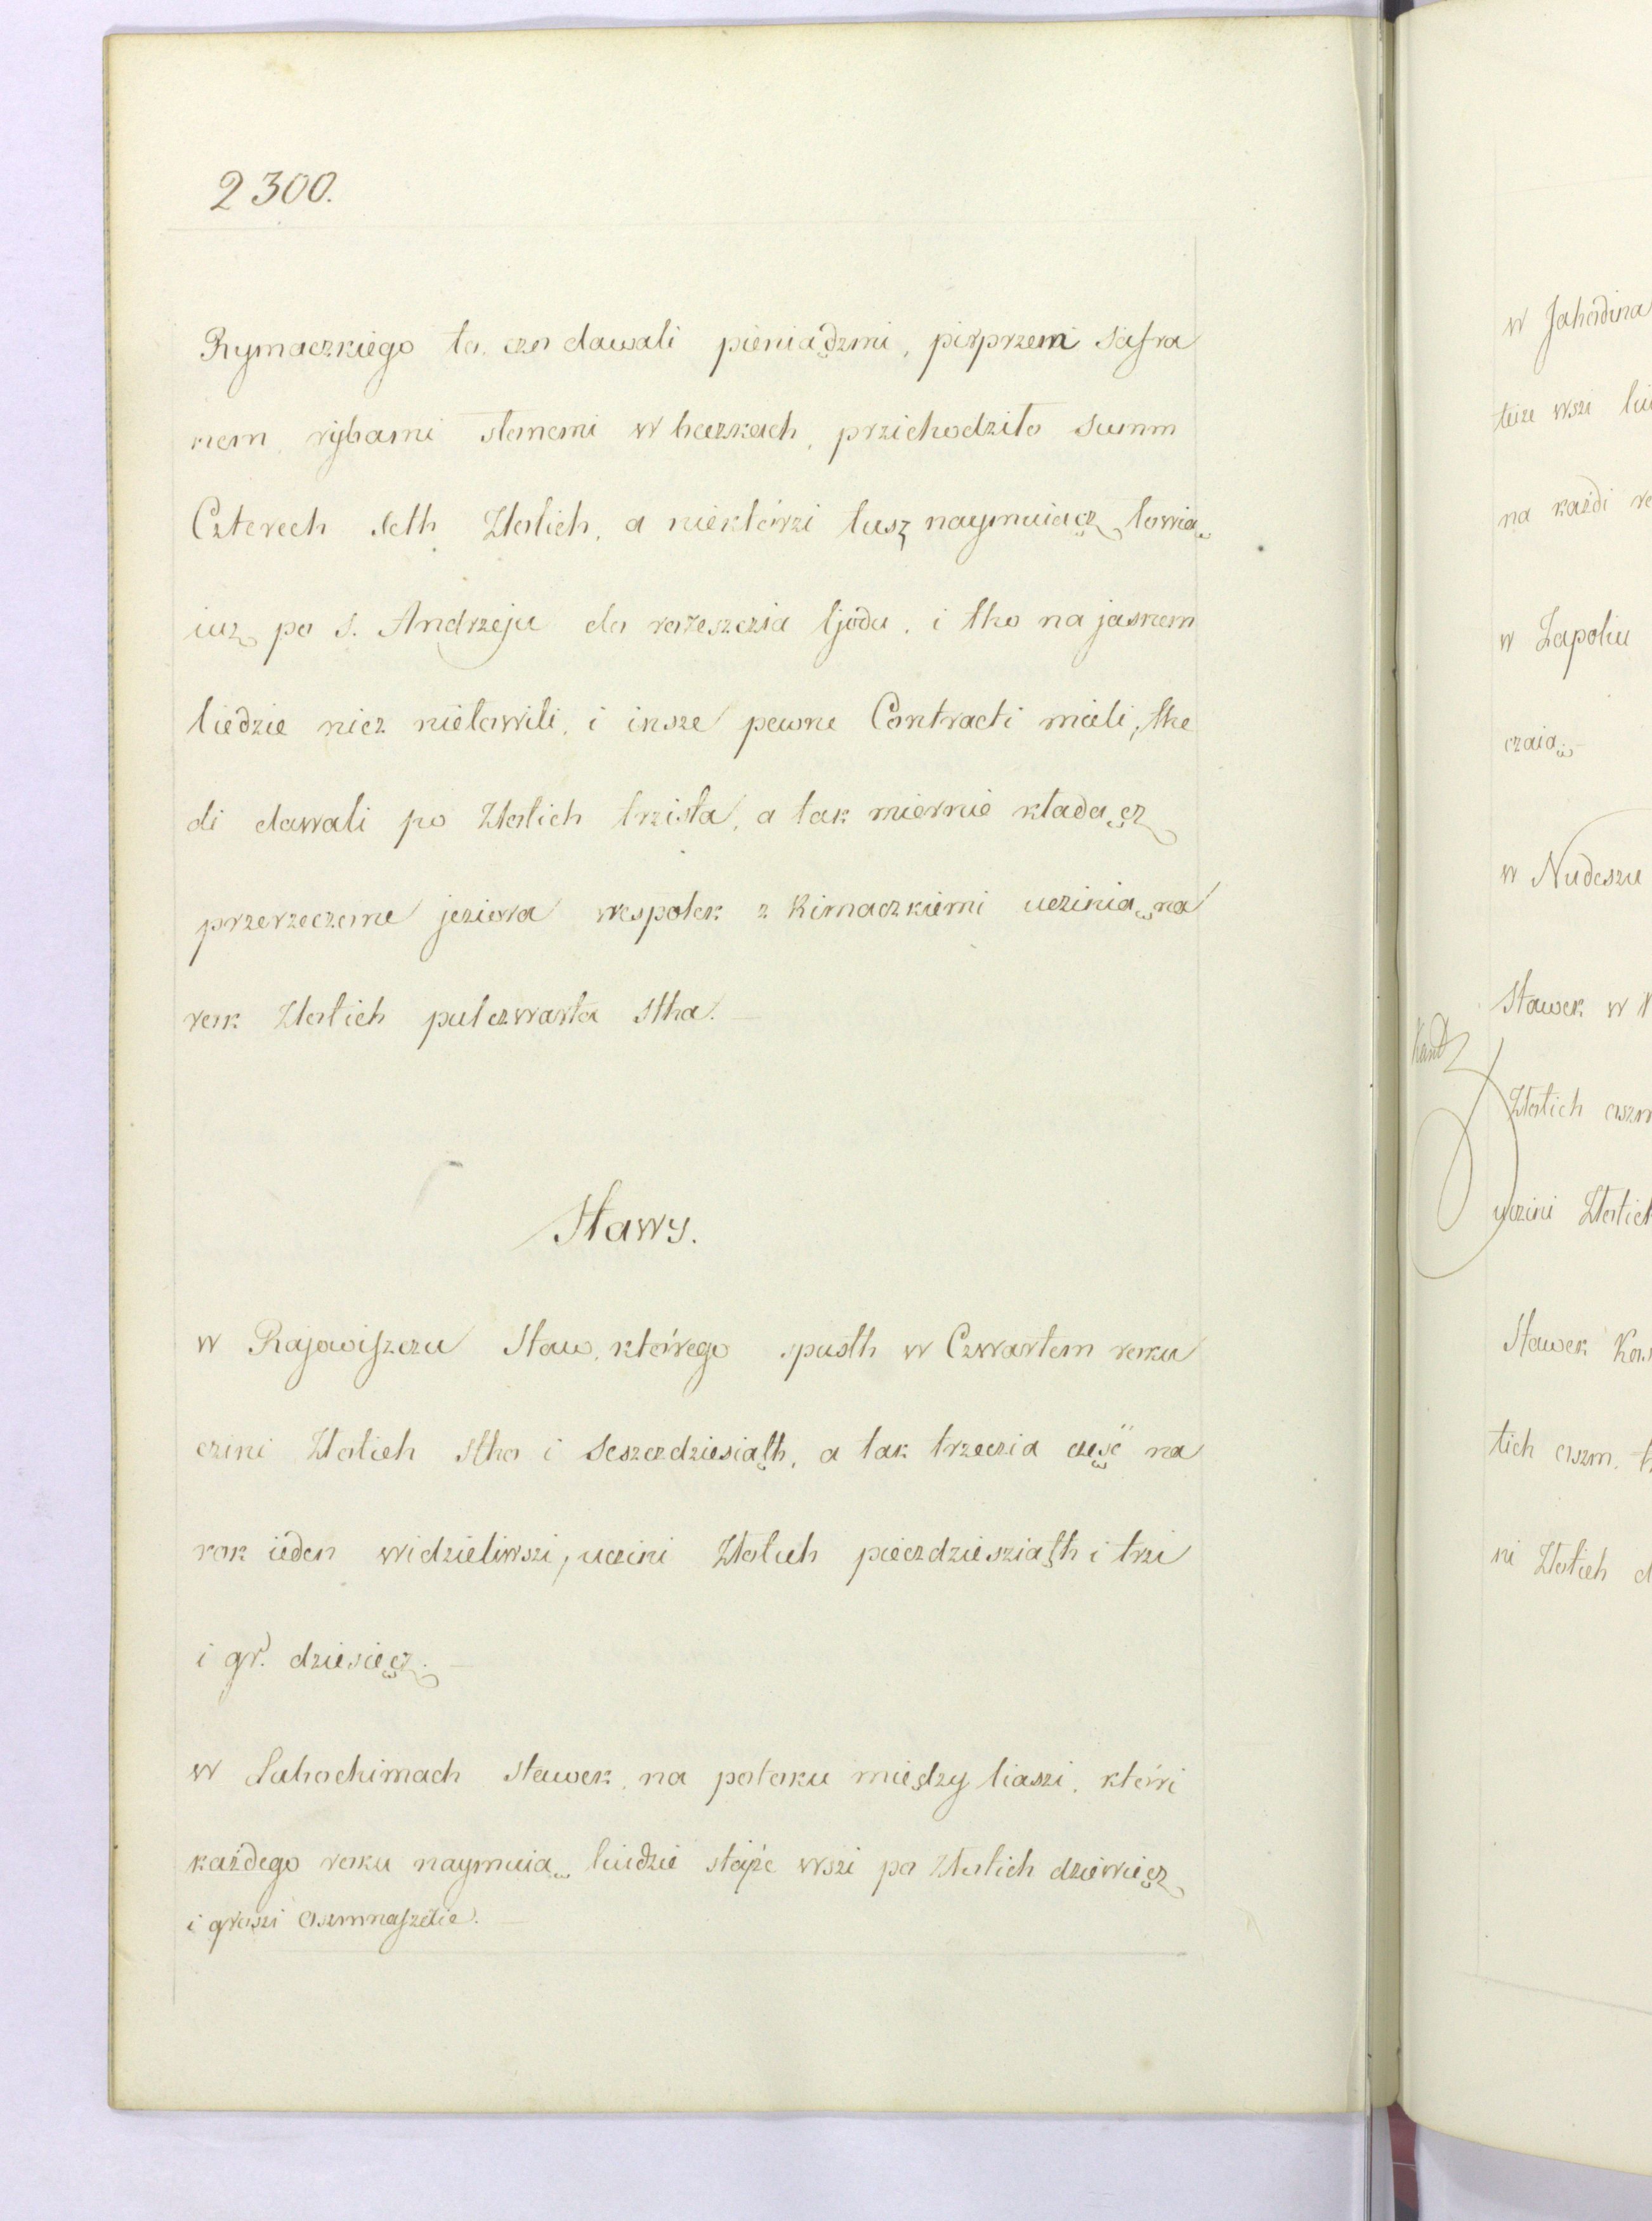 2300.
Rymaczkiego to, czo dawali pieniądzmi, pirprzem safra
nem, rÿbami słonemi w beczkach, przichodziło summ
Czterech seth Złotich, a niektórzi tusz naymuiącz łowią
iusz po s. Andrzeju do rozeszczia ljodu, i tho na jasnem
liedzie nicz niełowili, i insze pewne Contracti mieli, the
di dawali po Złotich trzista, a tak miernie kładącz
przerzeczone jeziora wespołek z Rimaczkiemi uczinią na
rok Złotich pułczwarta stha.
Stawy.
w Rajowiszczu Staw, którego spusth w Czwartem roku
czini Złotich stho i szeszczdziesiąth, a tak trzeczia część na
rok ieden widzieliwszi, uczini Złotich pieczdziesziąth i trzi
i gr. dziesięcz.
w Suhochimach stawek na potoku między liaszi, któri
każdego roku naymuią liudzie stąże wszi po złotich dziewięcz
i groszi oszmnaszczie.
w Jahodina
téize wszi liu
na każdi ro
w Zapoliu
czaią.
w Nudeszu
Stawek w
Złotich oszm
uczini Złotich
Stawek
tich oszm.
ni Złotich